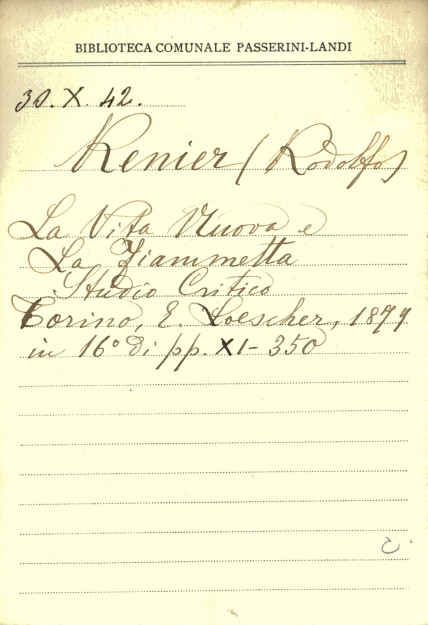 BIBLIOTECA COMUNALE PASSERINI-LANDI
30. X. 42.
Renier (Rodolfo)
La Vita Nuova e
La Fiammetta
Studio Critico
Torino, E. Loescher, 1879
in 16° di pp. XI-350